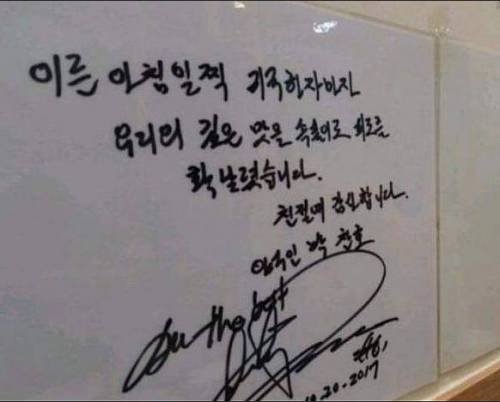 이른 아침일찍 귀국하자마자
우리의 깊은 맛을 피로를
확 날렸습니다.
친절에 감사합니다.
야구인 박 찬호
All the best
10.20.2017